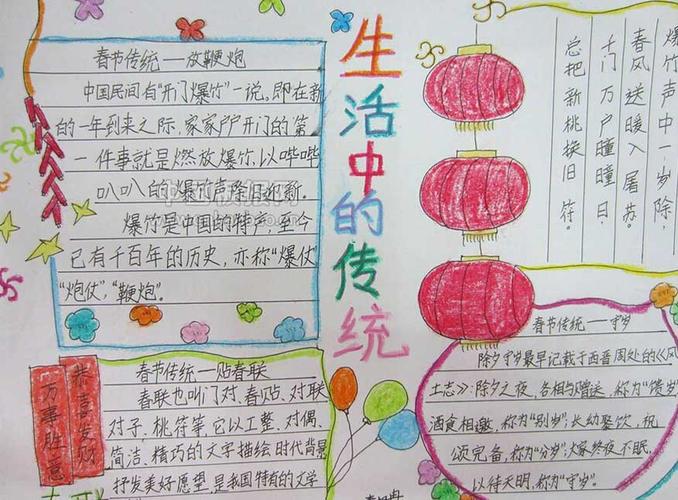 生活中的传统
春节传统——放鞭炮
中国民间有“开门爆竹”一说,即在新
的一年到来之际,家家户户开门的第
一件事就是燃放爆竹,以哔哔
叭叭的爆竹声除旧迎新.
爆竹是中国的特产,至今
已有千百年的历史,亦称“爆仗”
“炮仗”,“鞭炮”.
爆竹声中一岁除,
春风送暖入屠苏。
千门万户曈曈日,
总把新桃换旧符。
恭喜发财
万事胜意
春节传统——贴春联
春联也叫门对、春贴、对联
对子,桃符等,它以工整、对偶、
简洁、精巧的文字描绘时代背景
抒发美好愿望,是我国特有的文学
春节传统——守岁
除夕守岁最早记载于西晋周处的《风
土志》:除夕之夜,各相与赠送,称为“馈岁”
酒食相邀,称为“别岁”;长幼聚饮,祝
颂完备,称为“分岁”;大家终夜不眠,
以待天明,称为“守岁”.